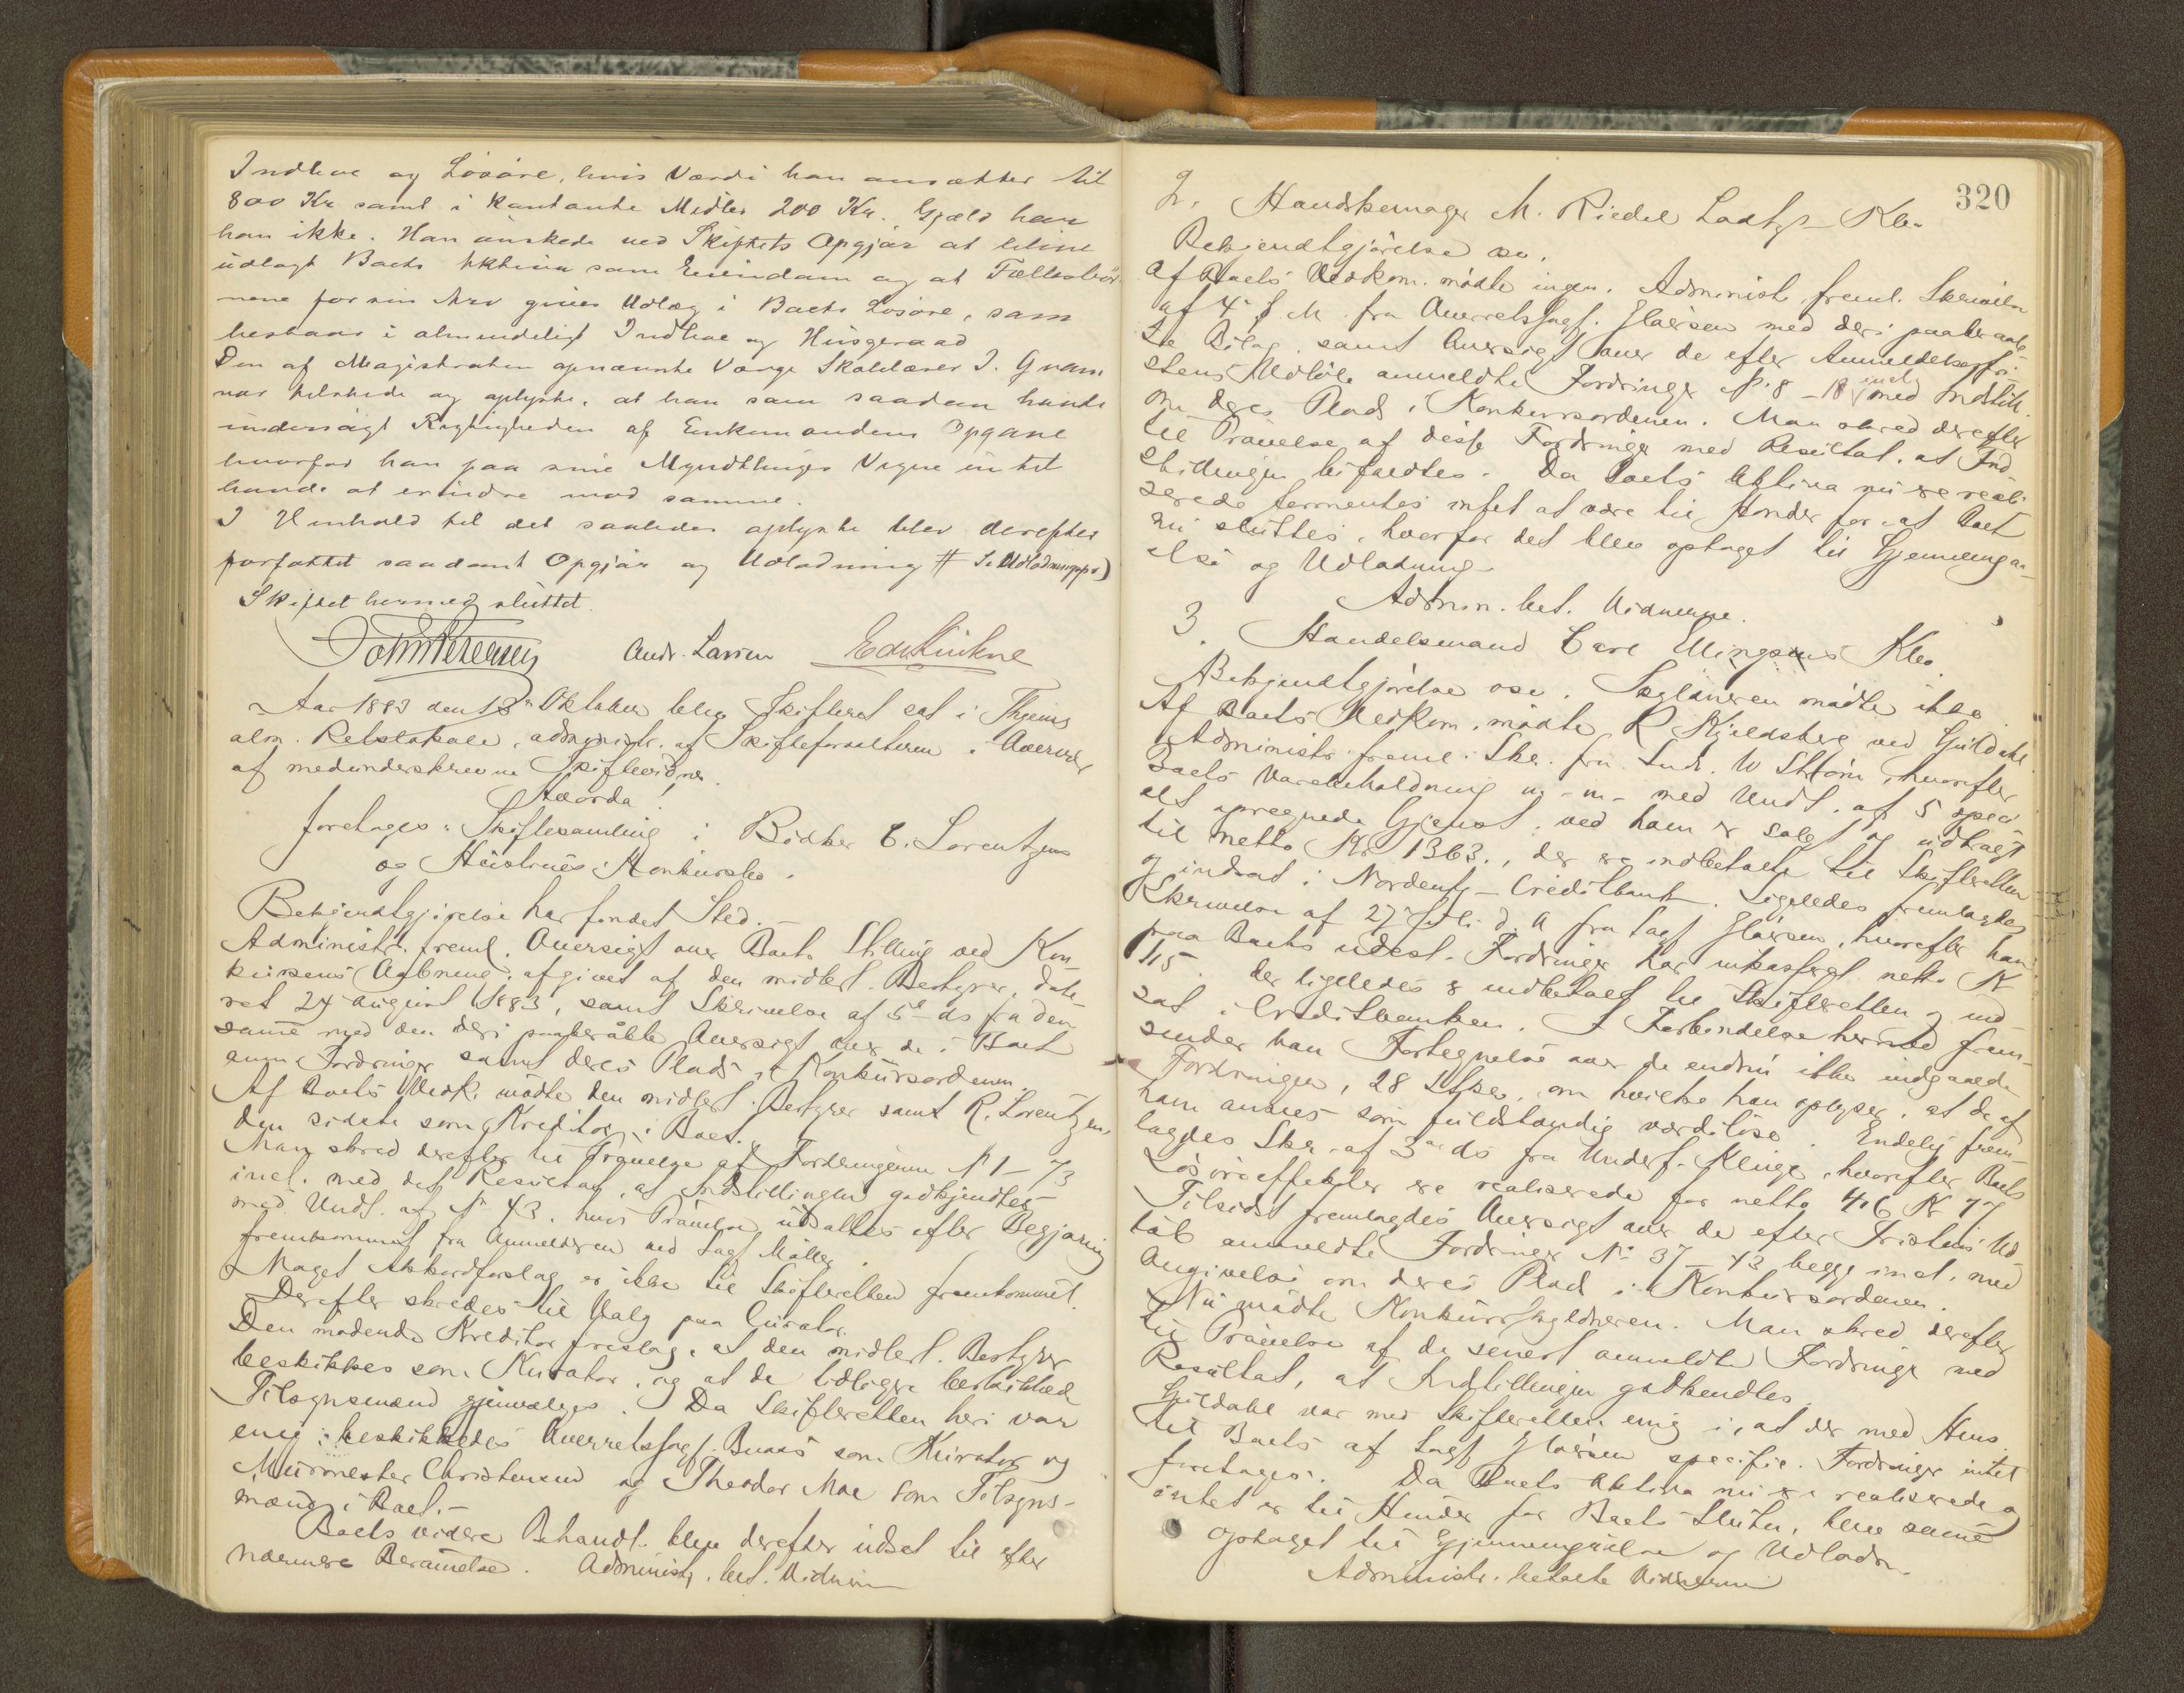 Indboe og Løsøre, hvis Værdi han ansætter til
800 Kr samt i kontante Midler 200 Kr. Gjæld har
han ikke. Han ønskede ved Skiftets Opgjør at blive
udlagt Boets Aktiva som Eiendom og at Fællesbør-
nene for sin Arv gives Udlæg i Boets Løsøre, som
bestaar i almindeligt Indboe og Husgeraad
Den af Magistraten opnævnte Værge Skolelærer I. Gram
var tilstede og oplyste, at han som saadan havde
undersøgt Rigtigheden af Enkemandens Opgave
hvorfor han paa sine Myndtlinges Vegne intet
havde at erindre mod samme.
I Henhold til det saaledes oplyste blev derefter
forfattet saadant Opgjør og Udlodning # Se Udlodningspr)
Skiftet hermed sluttet.
Andr. Larsen
Aar 1883 den 18de Oktober blev Skifteret sat i Thjems
alm. Retslokale, administr. af Skifteforvalteren i Overvær
af medunderskrevne Skiftevidner.
Hvorda
foretoges: Skiftesamling i Bødker E. Lorentzens
og Hustrues Konkursbo.
Bekjendtgjørelse har fundet Sted.
Administr. freml. Oversigt over Boets Stilling ved Kon-
kursens Aabning, afgivet af den midlert. Bestyrer, date-
ret 24 august 1883, samt Skrivelse af 5te ds fra den
samme med den deri paaberåbte Oversigt over de i Boet
anm. Fordringer samt deres Plads i Konkursordenen.
Af Boets Vedk. mødte den midlert. Bestyrer samt R. Lorentzen,
den sidste som Kreditor i Boet.
Man skred derefter til Prøvelse af Fordringerne No 1 - 43
incl. med det Resultat, at Indstillingen godkjendtes
med Undt. af No 43, hvis Prøvelse udsattes efter Begjæring
fremkommet fra Anmelderen ved Sagf. Møller.
Noget Akkordforslag er ikke til Skifteretten fremkommet.
Derefter skredes til Valg paa Curator.
Den mødende Kreditor foreslog, at den midlert. Bestyrer
beskikkes som Kurator, og at de tidligere beskikkede
Tilsynsmænd gjenvælges. Da Skifteretten heri var
enig, beskikkedes Overretssagf. Buaas som Kurator og
Murmester Christensen og Theodor Moe som Tilsyns-
mænd i Boet.-
Boets videre Behandl. blev derefter udsat til efter
nærmere Berammelse. Administr. bet. Vidnerne
320
2. Handskemager M. Riedel Konk.
Bekjendtgjørelse osv.
Af Boets Vedkom. mødte ingen. Administr. freml. Skrivelse
af 4de d. M. fra Overretssagf. Claesen med deri paaberaab-
te Bilag samt Oversigt over de efter Anmeldelsesfri-
stens Udløb anmeldte Fordringer No. 8 - 18 incl med Indstill.
om deres Plads i Konkursordenen. Man skred derefter
til Prøvelse af disse Fordringer med Resultat, at Ind-
stillingen bifaldtes. Da Boets Aktiva nu ere reali-
serede formentes intet at være til Hinder for at Boet
nu sluttes, hvorfor det blev optaget til Gjennemgaa-
else og Udlodning
Admin. bet. Vidnerne.
3. Handelsmand Carl Ellingsens Kbo.
Bekjendtgjørelse osv. Skyldneren mødte ikke.
Af Boets Vedkom. mødte R Kjeldsberg ved Guldahl.
Administr. freml. Skr. fra Lods. W Strøm, hvorefter
Boets Varebeholdning m-m- med Undt. af 5 speci-
elt opregnede Gjenst. ved ham er solgt og udbragt
til netto Kr 1363., der ere indbetalte til Skifteretten
og indsat i Nordenfj- Creditbank. Ligeledes fremlagdes
Skrivelse af 27 d. A fra Sagf Claesen, hvorefter han
paa Boets udest. Fordringer har inkasseret netto Kr
115 der ligeledes er indbetalt til Skifteretten og ind-
sat i Creditbanken. I Forbindelse hermed frem-
sender han Fortegnelse over de endnu ikke indgaaede
Fordringer, 28 Stkr. om hvilke han oplyser, at de af
ham ansees som fuldstændig værdiløse. Endelig frem-
lagdes Skr. af 3die ds fra Underf. Klinge, hvorefter Boets
Løsøreeffekter ere realiserede for netto 406 Kr 47
Tilsidst fremlagdes Oversigt over de efter Fristens Ud-
løb anmeldte Fordringer No 37 - 43 begge incl. med
Angivelse om deres Plads i Konkursordenen.
Nu mødte Konkursskyldneren. Man skred derefter
til Prøvelse af de senest anmeldte Fordringer med
Resultat, at Indstillingen godkjendtes.
Guldahl var med Skifteretten enig i, at der med Hens.
til Boets af Sagf Claesen specific. Fordringer intet
foretages. Da Boets Aktiva nu er realiserede og
intet er til Hinder for Boets Slutn., blev samme
optaget til Gjennemgaaelse og Udlodn.
Administr. betalte Vidnerne